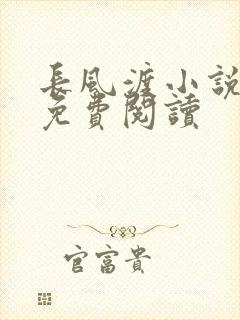 長風渡小說
免費閱讀
官富貴